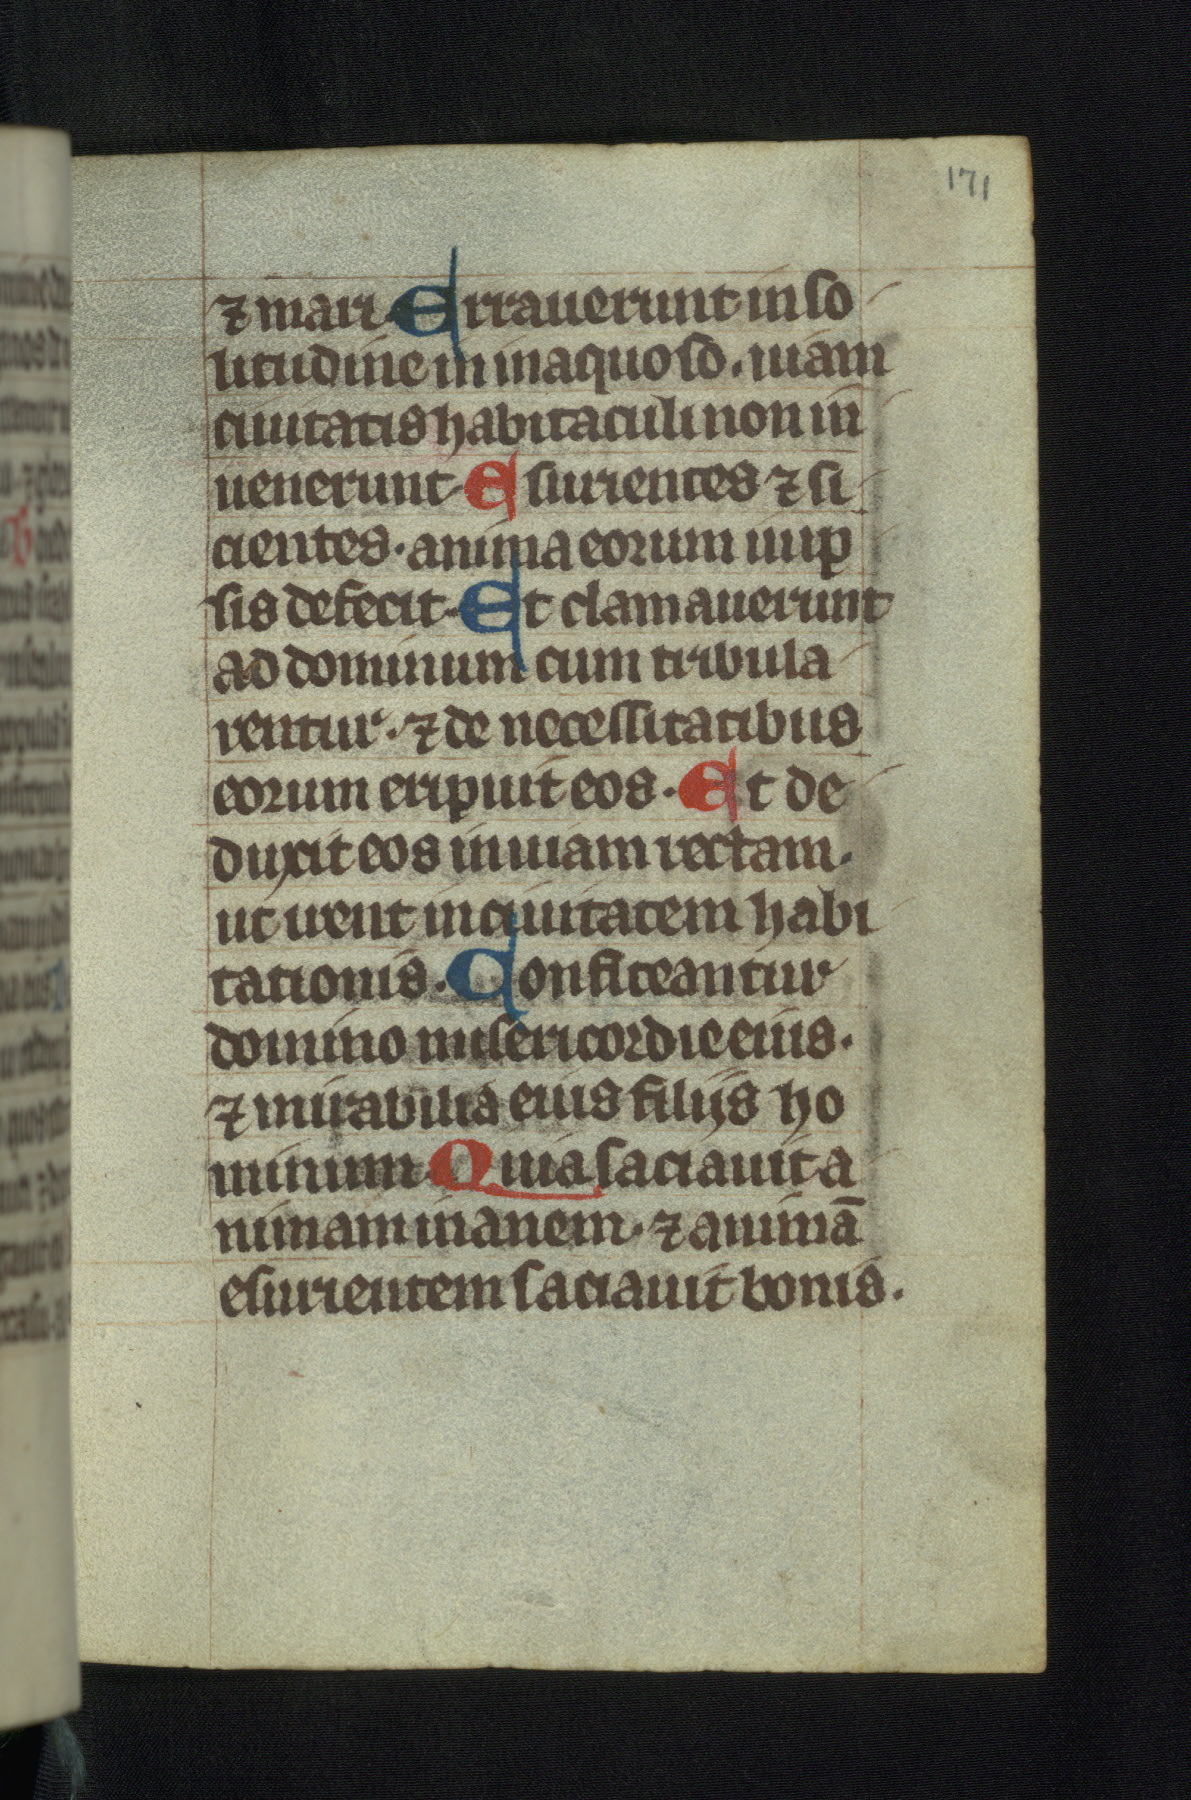 171
⁊ mari. Errauerunt in so
litudine in inaquoso. uiam
ciuitatis habitaculi non in
uenerunt. Esurientes ⁊ si
cientes. anima eorum in ip
sis defecit. Et clamauerunt
ad dominum cum tribula
rentur. ⁊ de necessitatibus
eorum eripuit eos. Et de
duxit eos in uiam rectam.
ut irent in ciuitatem habi
tationis. Confiteantur
domino misericordie eius.
⁊ mirabilia eius filijs ho
minum. Quia saciauit a
nimam inanem. ⁊ animā
esurientem saciauit bonis.